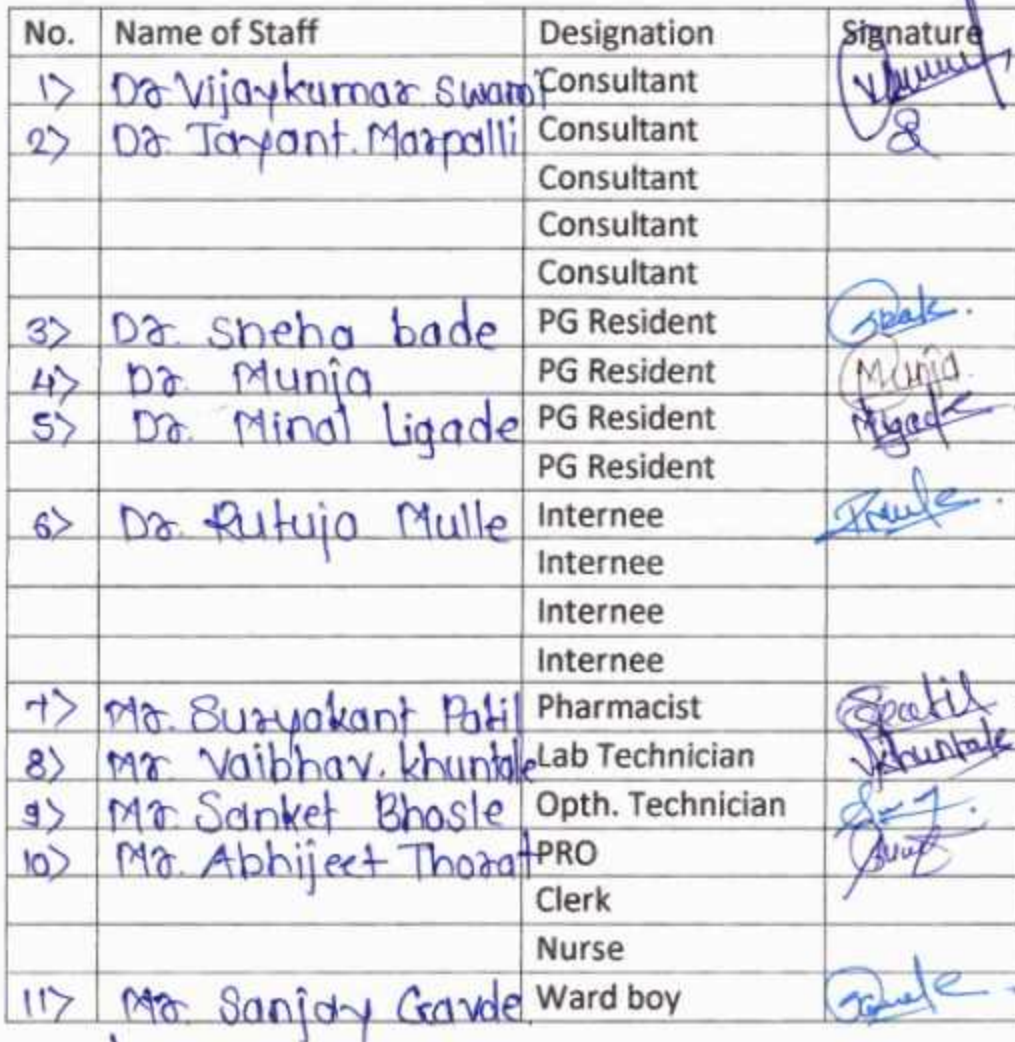 No. Name of Staff Designation Signature
1> Dr Vijaykumar Swami Consultant
2> Dr. Jayant. Marpalli Consultant
Consultant
Consultant
Consultant
3> Dr. Sneha bade PG Resident
4> Dr. Munja PG Resident Munja
5> Dr. Minal Ligade PG Resident
PG Resident
6> Dr. Rutuja Mulle Internee
Internee
Internee
Internee
7> Mr. Suryakant Patil Pharmacist Spatil
8> Mr. Vaibhav. khuntale Lab Technician Vkhuntale
9> Mr. Sanket Bhosle Opth. Technician
10> Mr. Abhijeet Thorat PRO
Clerk
Nurse
11> Mr. Sanjay Gavde Ward boy